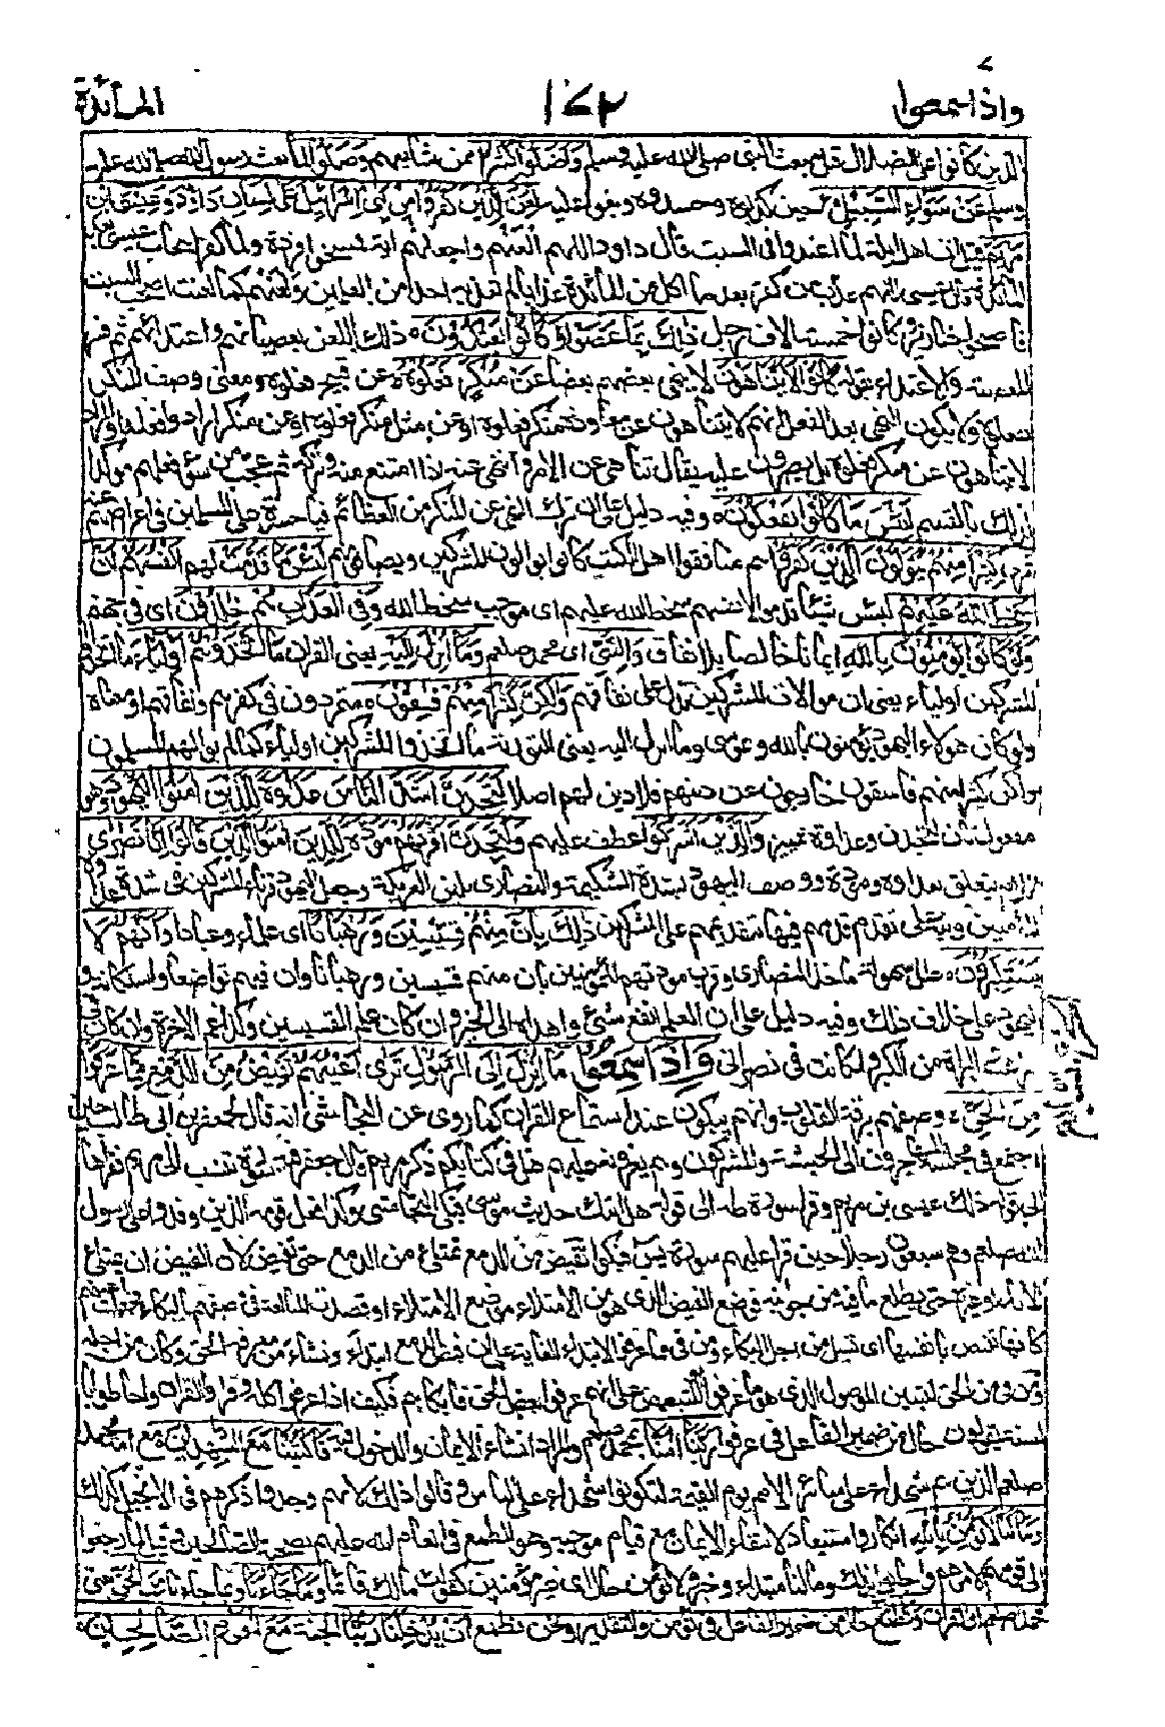 واذا سمعوا ١٧٢ المائدة
الذين كانوا على الضلال قبل مبعث النبى صلى الله عليه وسلم وَأَضَلُّوا كَثِيرًا ممن شايعهم وَضَلُّوا لما بعث رسول الله صلى الله عليه
وسلم عَنْ سَوَاءِ السَّبِيْلِ حين كذبوه وحسدوه وبغوا عليه لُعِنَ الَّذِيْنَ كَفَرُوا مِنْ بَنِى اِسْرَائِيْلَ عَلَى لِسَانِ دَاوُدَ وَعِيْسَى ابْنِ
مَرْيَمَ قيل ان اهل ايلة لما اعتدوا فى السبت قال داود اللهم العنهم واجعلهم اية فمسخوا قردة ولما كفر اصحاب عيسى بعد
المائدة قال عيسى اللهم عذب من كفر بعد ما اكل من المائدة عذابا لم تعذبه احدا من العالمين والعنهم كما لعنت اصحب السبت
فاصبحوا خنازير وكانوا خمسة الاف رجل ذٰلِكَ بِمَا عَصَوْا وَكَانُوْا يَعْتَدُوْنَ ذلك اللعن بعصيانهم واعتدائهم ثم فسر
المعصية والاعتداء بقوله كَانُوْا لَا يَتَنَاهَوْنَ لا ينهى بعضهم بعضا عَنْ مُنْكَرٍ فَعَلُوْهُ عن قبيح فعلوه ومعنى وصف المنكر
بفعلوه ولا يكون النهى بعد الفعل انهم لا يتناهون عن معاودة منكر فعلوه او عن مثل منكر فعلوه او عن منكر ارادوا فعله او المراد
لا ينتهون عن منكر فعلوه بل يصرون عليه يقال تناهى عن الامر وانتهى عنه اذا امتنع منه وتركه ثم عجب من سوء فعلهم موكدا
لذلك بالقسم لَبِئْسَ مَا كَانُوْا يَفْعَلُوْنَ وفيه دليل على ان ترك النهى عن المنكر من العظائم فيا حسرة على المسلمين فى اعراضهم عنه
تَرٰى كَثِيْرًا مِنْهُمْ يَتَوَلَّوْنَ الَّذِيْنَ كَفَرُوْا هم منافقوا اهل الكتب كانوا يوالون المشركين ويصافونهم لَبِئْسَ مَا قَدَّمَتْ لَهُمْ اَنْفُسُهُمْ اَنْ
سَخِطَ اللّٰهُ عَلَيْهِمْ لبئس شيئا قدموا لانفسهم سخط الله عليهم اى موجب سخط الله وَفِى الْعَذَابِ هُمْ خٰلِدُوْنَ اى فى جهنم
وَلَوْ كَانُوْا يُؤْمِنُوْنَ بِاللهِ ايمانا خالصا بلا نفاق وَالنَّبِىِّ اى محمد صلعم وَمَا اُنْزِلَ اِلَيْهِ يعنى القران مَا اتَّخَذُوْهُمْ اَوْلِيَاءَ ما اتخذوا
المشركين اولياء يعنى ان موالاة المشركين تدل على نفاقهم وَلٰكِنَّ كَثِيْرًا مِنْهُمْ فٰسِقُوْنَ متمردون فى كفرهم ونفاقهم او معناه
ولو كان هؤلاء اليهود يؤمنون بالله وموسى وما انزل اليه يعنى التورية ما اتخذوا المشركين اولياء كما لم يوالهم المسلمون
ولكن كثيرا منهم فاسقون خارجون عن دينهم فلا دين لهم اصلا لَتَجِدَنَّ اَشَدَّ النَّاسِ عَدَاوَةً لِلَّذِيْنَ اٰمَنُوا الْيَهُوْدَ هو
مفعول ثان لتجدن وعداوة تمييز وَالَّذِيْنَ اَشْرَكُوْا عطف عليهم وَلَتَجِدَنَّ اَقْرَبَهُمْ مَوَدَّةً لِلَّذِيْنَ اٰمَنُوا الَّذِيْنَ قَالُوْا اِنَّا نَصٰرٰى
اللام يتعلق بعداوة ومودة ووصف اليهود بشدة الشكيمة والنصارى بلين العريكة وجعل اليهود قرناء المشركين فى شدة عداوة
المؤمنين ونبه على تقدم قدمهم فيها بتقديمهم على المشركين ذٰلِكَ بِاَنَّ مِنْهُمْ قِسِّيْسِيْنَ وَرُهْبَانًا اى علماء وعبادا وَاَنَّهُمْ لَا
يَسْتَكْبِرُوْنَ علل سهولة ماخذ النصارى وقرب مودتهم للمؤمنين بان منهم قسيسين ورهبانا وان فيهم تواضعا واستكانة و
اليهود على خلاف ذلك وفيه دليل على ان العلم انفع شئ واهداه الى الخير وان كان علم القسيسين وكذا علم الاخرة وان كان فى
راهب والبراءة من الكبر وان كانت فى نصرانى وَاِذَا سَمِعُوْا مَا اُنْزِلَ اِلَى الرَّسُوْلِ تَرٰى اَعْيُنَهُمْ تَفِيْضُ مِنَ الدَّمْعِ مِمَّا عَرَفُوْا
مِنَ الْحَقِّ وصفهم برقة القلوب وانهم يبكون عند استماع القران كما روى عن النجاشى انه قال لجعفر بن ابى طالب حين
اجتمع فى مجلسه المهاجرون الى الحبشة والمشركون وهم يقرؤنه عليهم هل فى كتابكم ذكر مريم قال جعفر فيه سورة تنسب الى مريم فقرأها
الى قوله ذلك عيسى بن مريم وقرأ سورة طه الى قوله هل اتيك حديث موسى فبكى النجاشى وكذا فعل قومه الذين وفدوا على رسول
الله صلعم وهم سبعون رجلا حين قرأ عليهم سورة يس فبكوا تفيض من الدمع تمتلئ من الدمع حتى تفيض لان الفيض ان يمتلئ
الاناء وغيره حتى يطلع ما فيه من جوانبه فوضع الفيض الذى هو من الامتلاء موضع الامتلاء او قصدت المبالغة فى وصفهم بالبكاء فجعلت اعينهم
كانها تفيض بانفسها اى تسيل من اجل البكاء ومن فى مما عرفوا لابتداء الغاية على ان فيض الدمع ابتدأ ونشأ من معرفة الحق وكان من اجله
ومن فى من الحق لتبيين الموصول الذى هو ما عرفوا او للتبعيض على انهم عرفوا بعض الحق فابكاهم فكيف اذا عرفوا كله وقرؤا القران واحاطوا بالسنة
يَقُوْلُوْنَ حال من ضمير الفاعل فى عرفوا رَبَّنَا اٰمَنَّا بمحمد صلعم والمراد انشاء الايمان والدخول فيه فَاكْتُبْنَا مَعَ الشّٰهِدِيْنَ مع امة محمد
صلعم الذين هم شهداء على سائر الامم يوم القيمة لتكونوا شهداء على الناس وقالوا ذلك لانهم وجدوا ذكرهم فى الانجيل كذلك
وَمَا لَنَا لَا نُؤْمِنُ بِاللهِ انكار واستبعاد لانتفاء الايمان مع قيام موجبه وهو الطمع فى انعام الله عليهم بصحبة الصالحين وقيل لما رجعوا
الى قومهم لاموهم فاجابوهم بذلك وما لنا مبتدأ وخبر ولا نؤمن حال اى غير مؤمنين كقولك مالك قائما وَمَا جَاءَنَا وبما جاءنا مِنَ الْحَقِّ يعنى
محمد صلعم والقران وَنَطْمَعُ حال من ضمير الفاعل فى نؤمن والتقدير ونحن نطمع اَنْ يُدْخِلَنَا رَبُّنَا الجنة مَعَ الْقَوْمِ الصّٰلِحِيْنَ